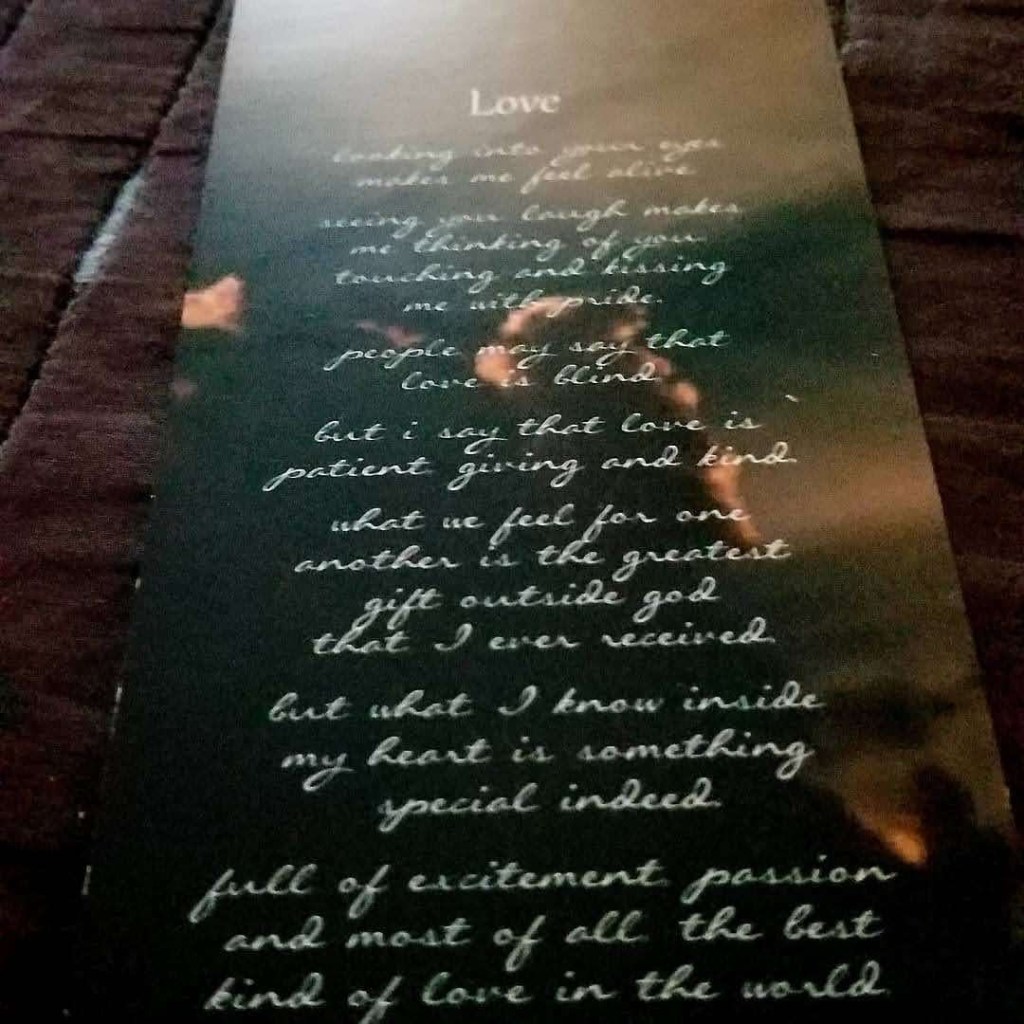 Love
looking into your eyes
makes me feel alive
seeing you laugh makes
me thinking of you
touching and kissing
me with pride.
people may say that
love is blind
but i say that love is
patient giving and kind.
what we feel for one
another is the greatest
gift outside god
that I ever received.
but what I know inside
my heart is something
special indeed.
full of excitement passion
and most of all the best
kind of love in the world.